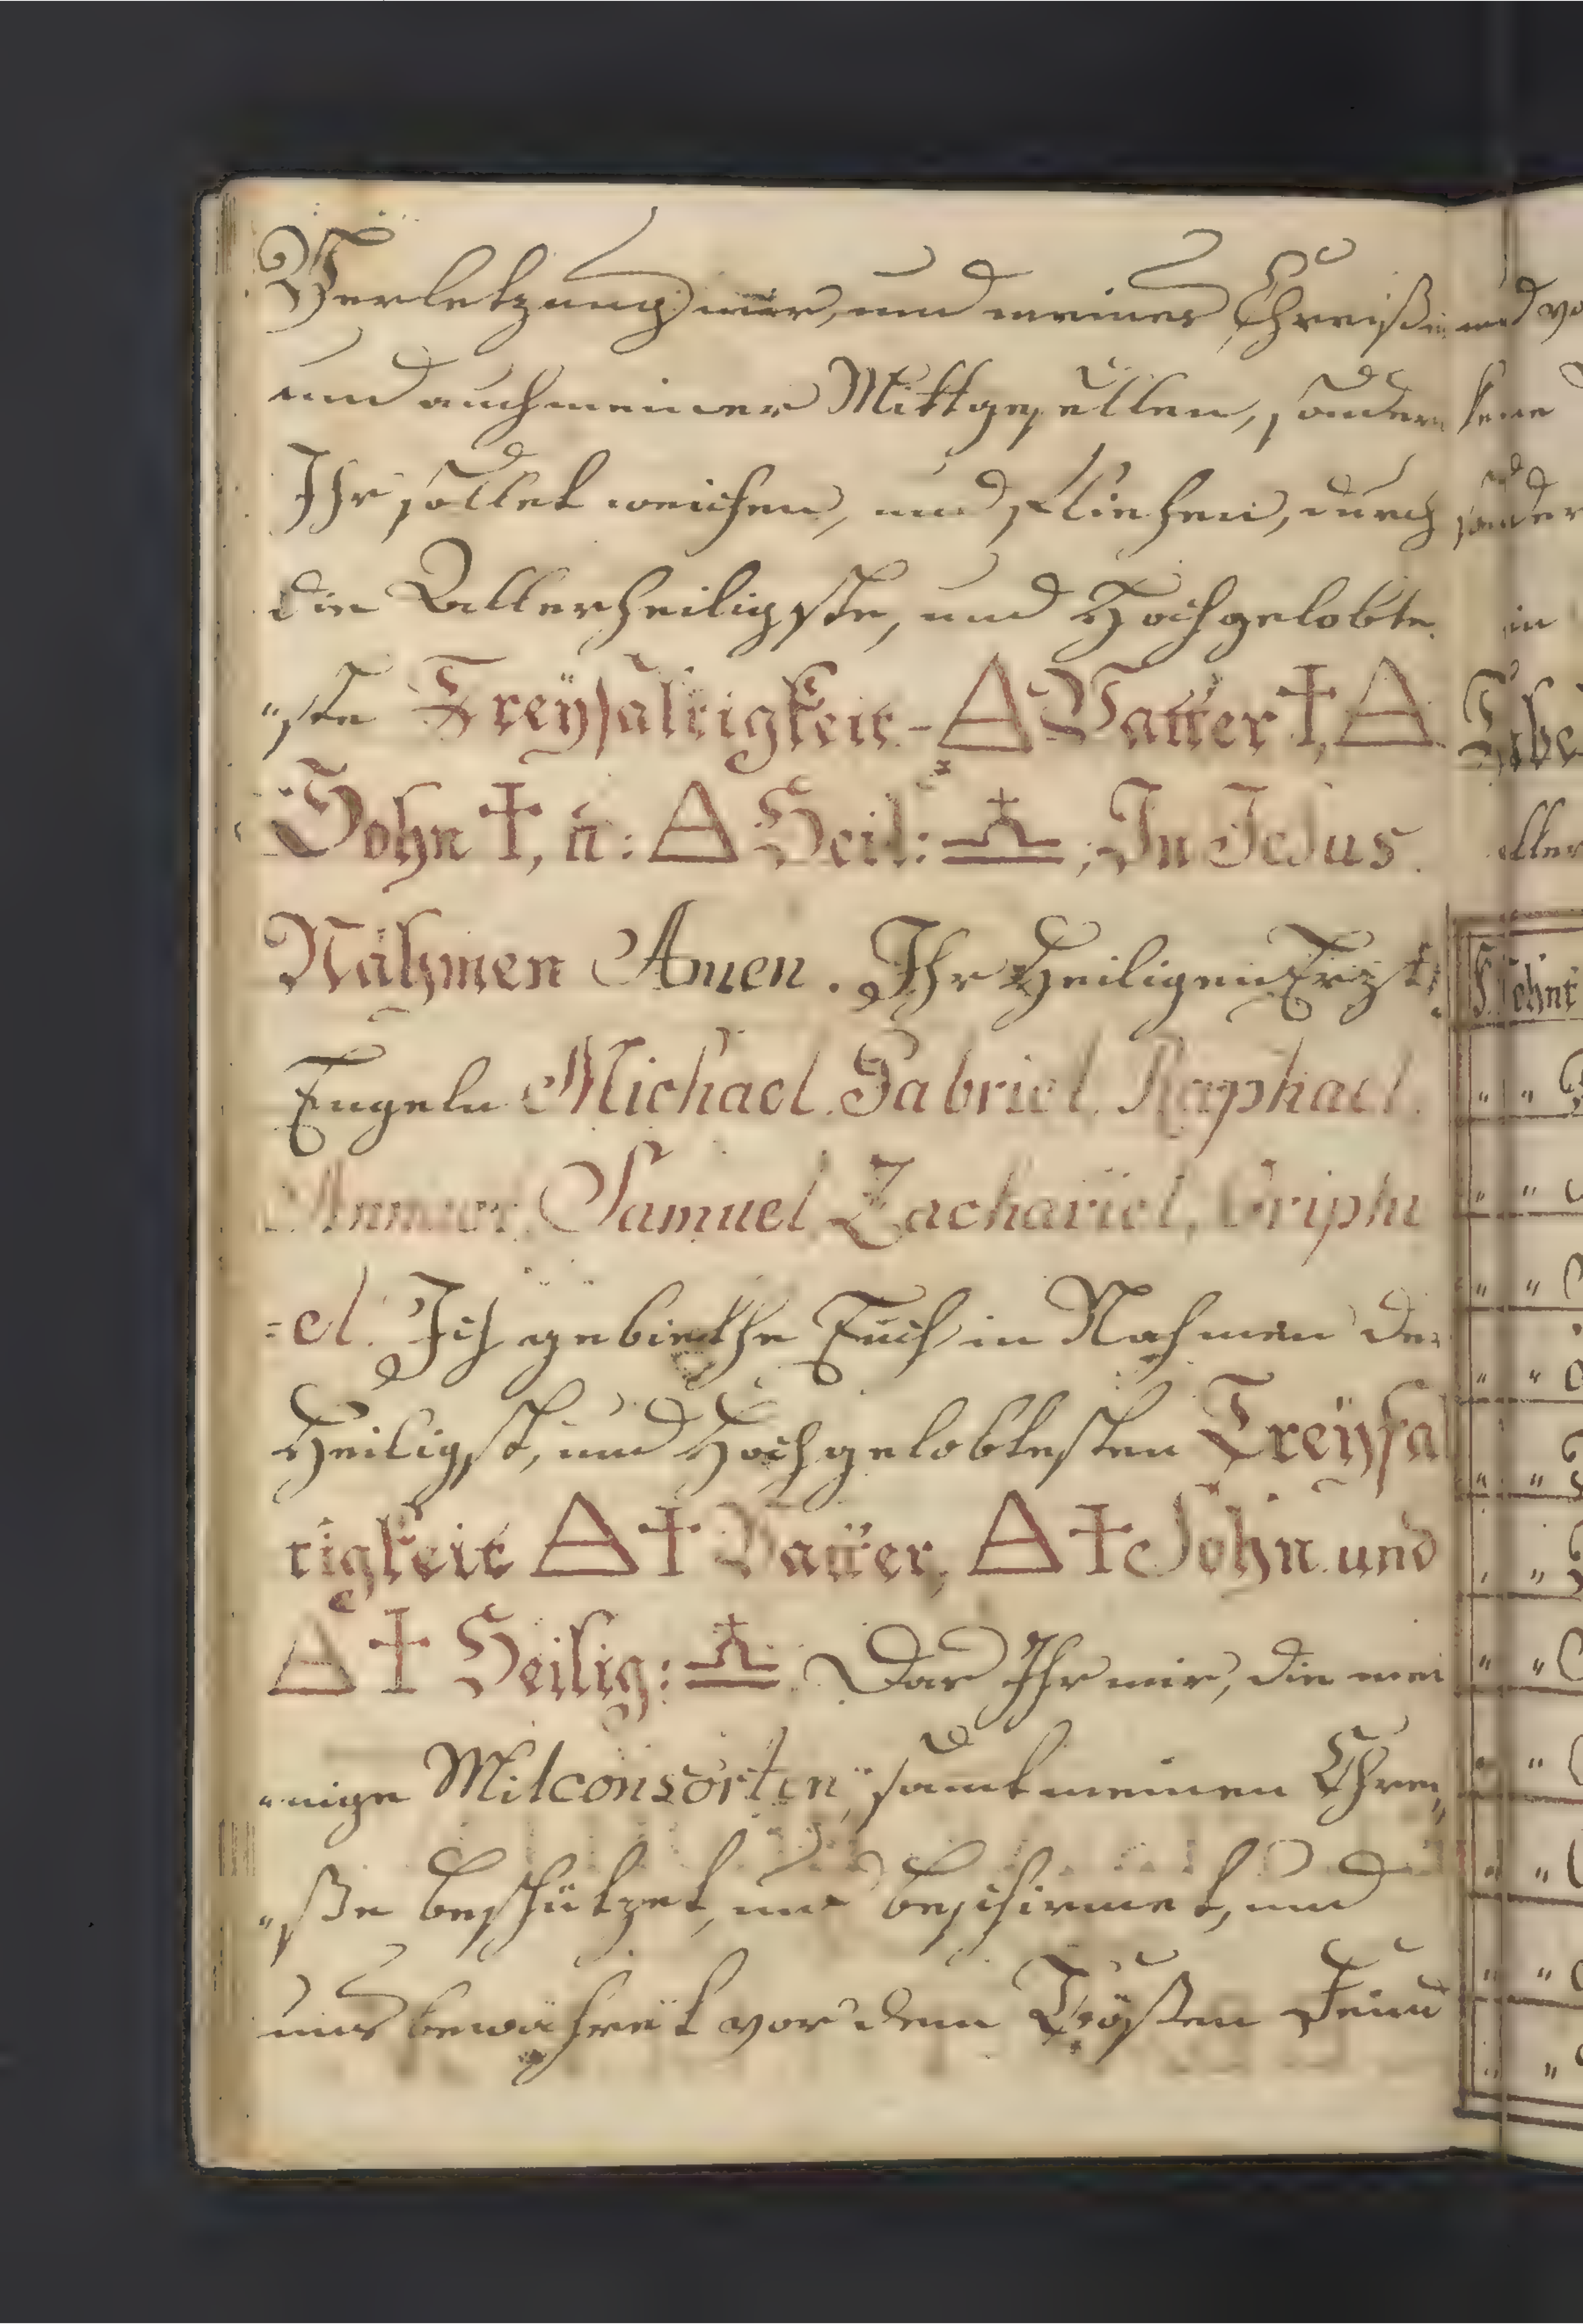 Verletzung mir, und meines Chreißes
und auch meiner Mittgesellen, sondern
Ihr sollet weichen, und fliehen, durch
die Allerheiligste, und Hochgelobte
"ste Dreyfaltigkeit - △ Vatter †, △
Sohn †, ū: △ Heil: ♎, In Jesus
Nahmen Amen. Ihr Heiligen Ertz
Engeln Michael. Gabriel. Raphael.
Samuel Zachariel, Oriphi
=el. Ich gebiethe Euch in Nahmen der
Heiligst, und Hochgelobtesten Dreyfal
tigkeit △ † Vatter, △ † Sohn und
△ † Heilig: ♎ Das Ihr mir, die mei
"nige Mitconsorten, samt meinen Chrei"
"ße beschützet, und beschirmet, und
uns bewahret vor dem Bößen Feind